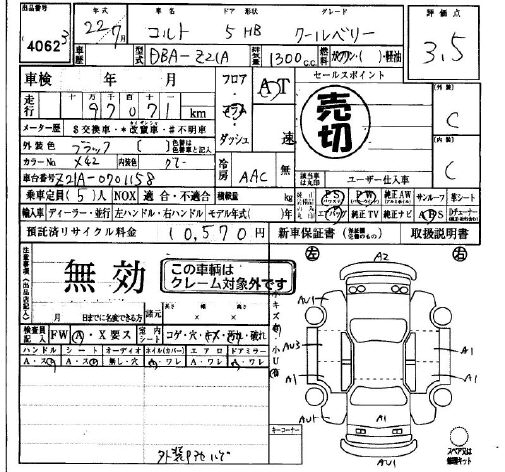 出品番号 年式 車名 ドア 形状 グレード 評価点
4062 3 22年7月 コルト 5 HB クールベリー 3.5
車歴 型式 DBA-Z21A 排気量 1300c.c. 燃料 ガソリン・( )・軽油
車検 年 月 フロア・コラム・ダッシュ AT 速 セールスポイント 外装 C
走行 十 万 千 百 十 一
97071 km
売切
メーター歴 $交換車・*改竄車・#不明車 内装 C
外装色 ブラック ( )色替は色番車と記入
カラーNo X42 内装色 グレー 冷房 AAC 無 ユーザー仕入車
車台番号 Z21A-0701158 該当車は○印
乗車定員( 5 )人 NOX 適合・不適合 積載量 kg PS PW 純正AW サンルーフ 革シート
輸入車 ディーラー・並行 左ハンドル・右ハンドル モデル年式( )年 エアバッグ 純正TV 純正ナビ ABS
預託済リサイクル料金 10,570円 新車保証書 取扱説明書
注意事項(出品店記入)
無効
この車輌はクレーム対象外です
左 右
A2
AU1 A1
AU3 A1
A1 A1
AU1
A1
AU1
月 日までに名変できる方 諸元 長さ × 幅 × 高さ
検査員記入 FW A・X要ス 室内シート コゲ・穴・キズ・汚れ・破れ
小キズ有・小U有
ハンドル シート オーディオ ホイル(カバー) エアロ ドアミラー
A・ス A・ス 無し・穴 A・ワレ A・ワレ A・ワレ
キーコーナー
スペア又は修理キット